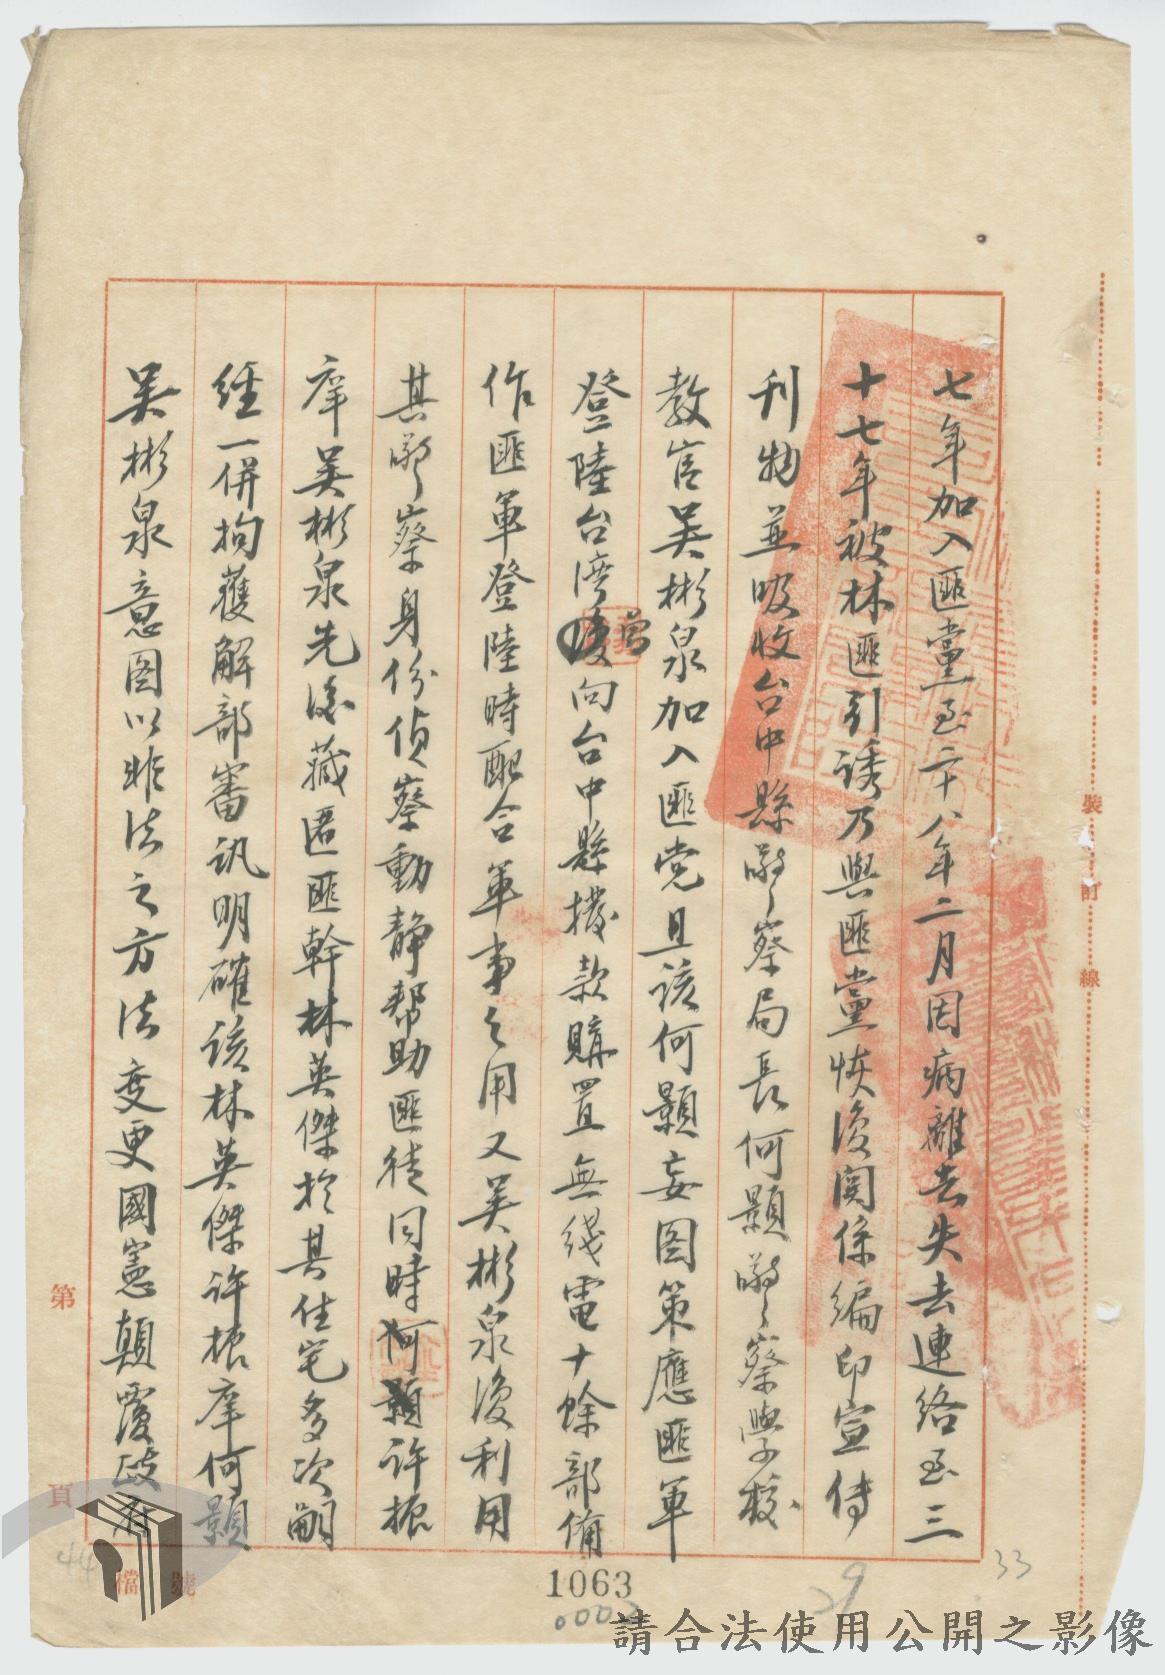 七年加入匪黨至二十八年二月因病離去失去連絡至三
十七年被林匪引誘乃與匪黨恢復関係編印宣傳
刊物並吸收台中縣警察局長何顯警察學校
教官吳彬泉加入匪党且該何顯妄图策應匪軍
登陸台湾曾向台中縣撥款購置無线電十餘部備
作匪軍登陸時配合軍事之用又吳彬泉復利用
其警察身份偵察動静帮助匪徒同時何顯許振
庠吳彬泉先後藏匿匪幹林英傑於其住宅多次嗣
經一併拘獲解部審訊明確該林英傑許振庠何顯
吳彬泉意图以非法之方法变更國憲顛覆政府
裝訂線
第
頁
檔號
1063
29
33
44
請合法使用公開之影像